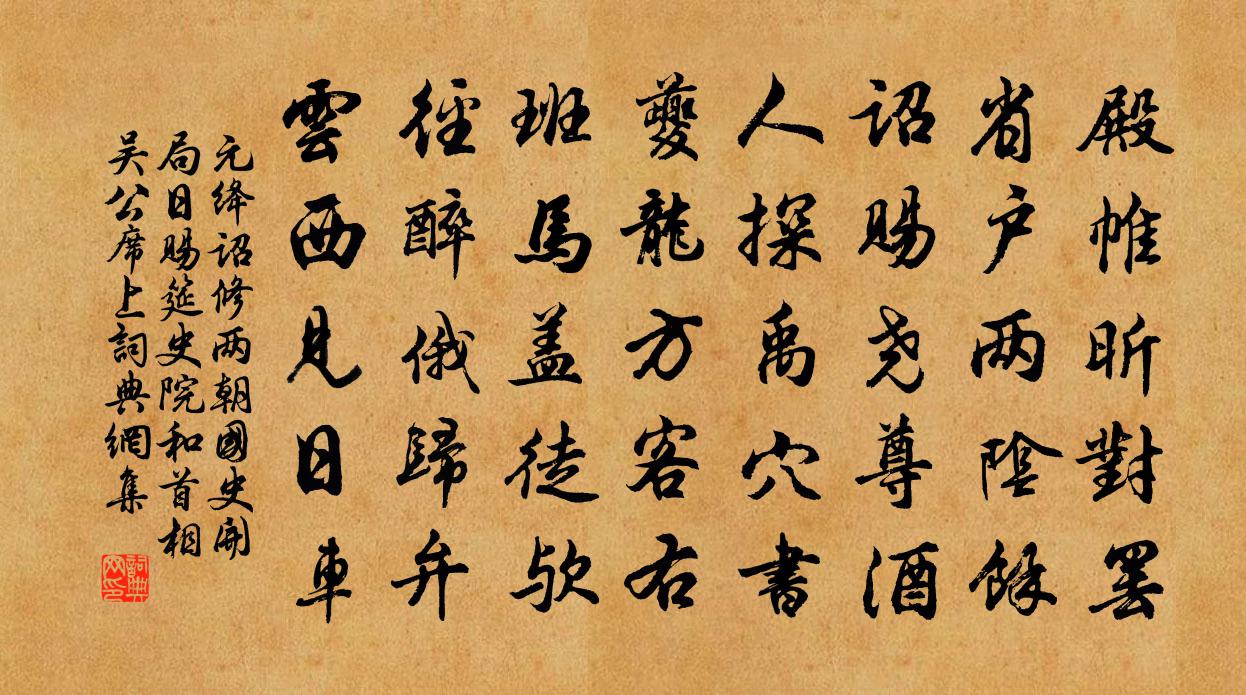 殿帷昕對罷
省户两陰餘
詔賜尧尊酒
人探禹穴書
夔龍方客右
班馬盖徒欤
徑醉俄歸弁
雲西見日車
元绛詔修两朝國史開
局日賜筵史院和首相
吴公席上詞典網集
詞典网印